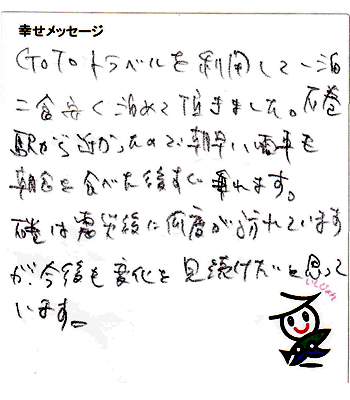 幸せメッセージ
GoToトラベルを利用して一泊
二食安く泊めて頂きました。石巻
駅から近かったので朝早い電車も
朝食を食べた後すぐ乗れます。
石巻は震災後に何度か訪れています
が、今後も変化を見続けたいと思って
います。